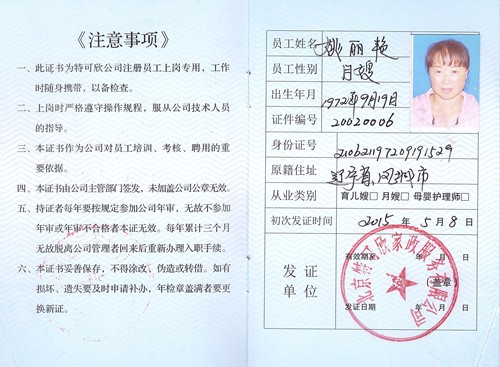 《注意事项》
一、此证书为特可欣公司注册员工上岗专用，工作
时随身携带，以备检查。
二、上岗时严格遵守操作规程，服从公司技术人员
的指导。
三、本证书作为公司对员工培训、考核、聘用的重
要依据。
四、本证书由公司主管部门签发，未加盖公司章无效。
五、持证者每年要按规定参加公司年审，无故不参加
年审或年审不合格者本证无效。每年累计三个月
无故脱离公司管理者回来后重新办理入职手续。
六、本证书妥善保存，不得涂改、伪造或转借。如有
损坏、遗失要及时申请补办，年检章盖满者要更
换新证。
员工姓名 姚丽艳
员工性别 月嫂
出生年月 1972年9月19日
证件编号 20020006
身份证号 210621197209191529
原籍住址 辽宁省凤城市
从业类别 育儿嫂□ 月嫂□ 母婴护理师□
初次发证时间 2015 年 5 月 8 日
有效期至: 年 月 日
发证
单位
(盖章)
发证日期 年 月 日
北京特可欣家政服务有限公司